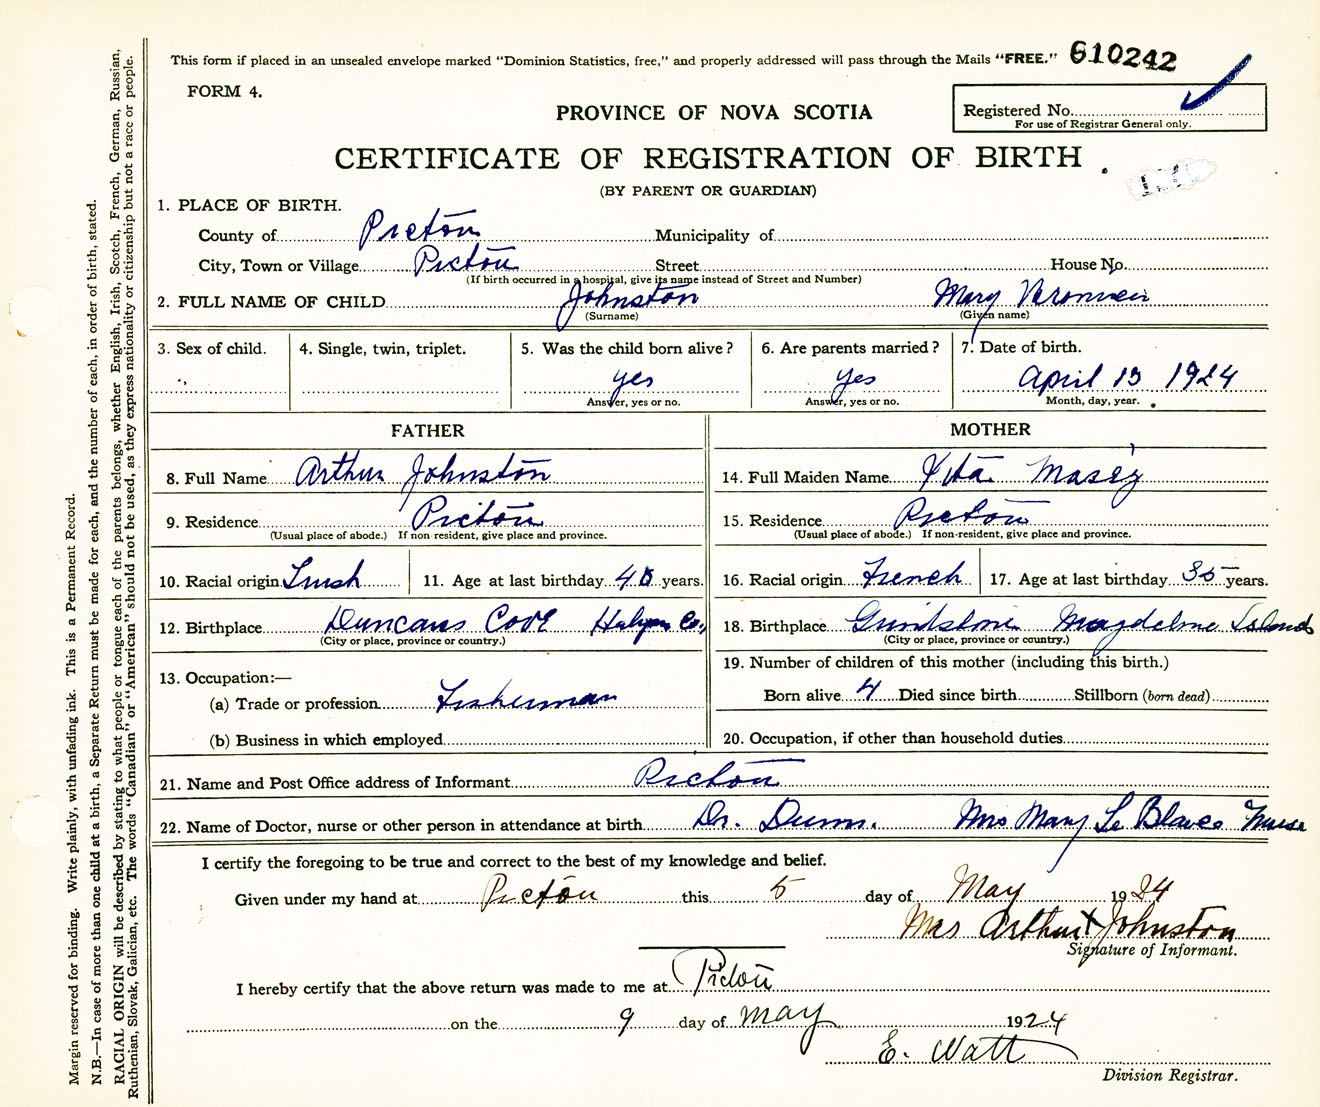 This form if placed in an unsealed envelope marked "Dominion Statistics, free," and properly addressed will pass through the Mails "FREE." 610242
FORM 4.
PROVINCE OF NOVA SCOTIA
Registered No.
For use of Registrar General only.
CERTIFICATE OF REGISTRATION OF BIRTH
(BY PARENT OR GUARDIAN)
1. PLACE OF BIRTH.
County of Pictou Municipality of
City, Town or Village Pictou Street House No.
(If birth occurred in a hospital, give its name instead of Street and Number)
2. FULL NAME OF CHILD Johnston Mary
(Surname) (Given name)
3. Sex of child. 4. Single, twin, triplet. 5. Was the child born alive? 6. Are parents married? 7. Date of birth.
yes yes April 13 1924
Answer, yes or no. Answer, yes or no. Month, day, year.
FATHER MOTHER
8. Full Name Arthur Johnston 14. Full Maiden Name
9. Residence Pictou 15. Residence Pictou
(Usual place of abode.) If non-resident, give place and province. (Usual place of abode.) If non-resident, give place and province.
10. Racial origin Irish 11. Age at last birthday years. 16. Racial origin French 17. Age at last birthday 35 years.
12. Birthplace Duncans Cove Co., 18. Birthplace Grindstone Magdelene Islands
(City or place, province or country.) (City or place, province or country.)
13. Occupation:— 19. Number of children of this mother (including this birth.)
(a) Trade or profession Fisherman Born alive 4 Died since birth Stillborn (born dead)
(b) Business in which employed 20. Occupation, if other than household duties
21. Name and Post Office address of Informant Pictou
22. Name of Doctor, nurse or other person in attendance at birth Dr. Dunn. Mrs Mary Le Blanc Nurse
I certify the foregoing to be true and correct to the best of my knowledge and belief.
Given under my hand at Pictou this 5 day of May 1924
Mrs Arthur X Johnston
Signature of Informant.
I hereby certify that the above return was made to me at Pictou
on the 9 day of May 1924
E. Watt
Division Registrar.
Margin reserved for binding. Write plainly, with unfading ink. This is a Permanent Record.
N.B.—In case of more than one child at a birth, a Separate Return must be made for each, and the number of each, in order of birth, stated.
RACIAL ORIGIN will be described by stating to what people or tongue each of the parents belongs, whether English, Irish, Scotch, French, German, Russian,
Ruthenian, Slovak, Galician, etc. The words "Canadian" or "American" should not be used, as they express nationality or citizenship but not a race or people.